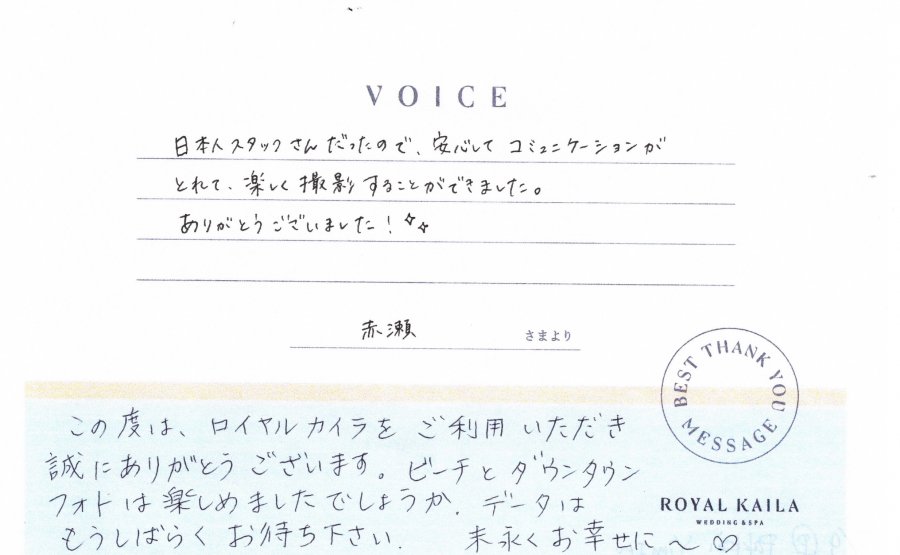 VOICE
日本人スタッフさんだったので、安心して コミュニケーションが
とれて、楽しく撮影することができました。
ありがとうございました！
赤瀬 さまより
BEST THANK YOU MESSAGE
この度は、ロイヤルカイラを ご利用 いただき
誠にありがとう ございます。ビーチと ダウンタウン
フォトは楽しめましたでしょうか. データは
もうしばらく お待ち下さい. 末永くお幸せに〜♡
ROYAL KAILA
WEDDING & SPA